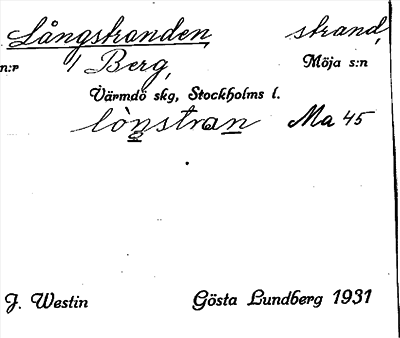 Långstranden strand,
n:r 1 Berg, Möja s:n
Värmdö skg, Stockholms l.
lònstran Ma 45
J. Westin Gösta Lundberg 1931